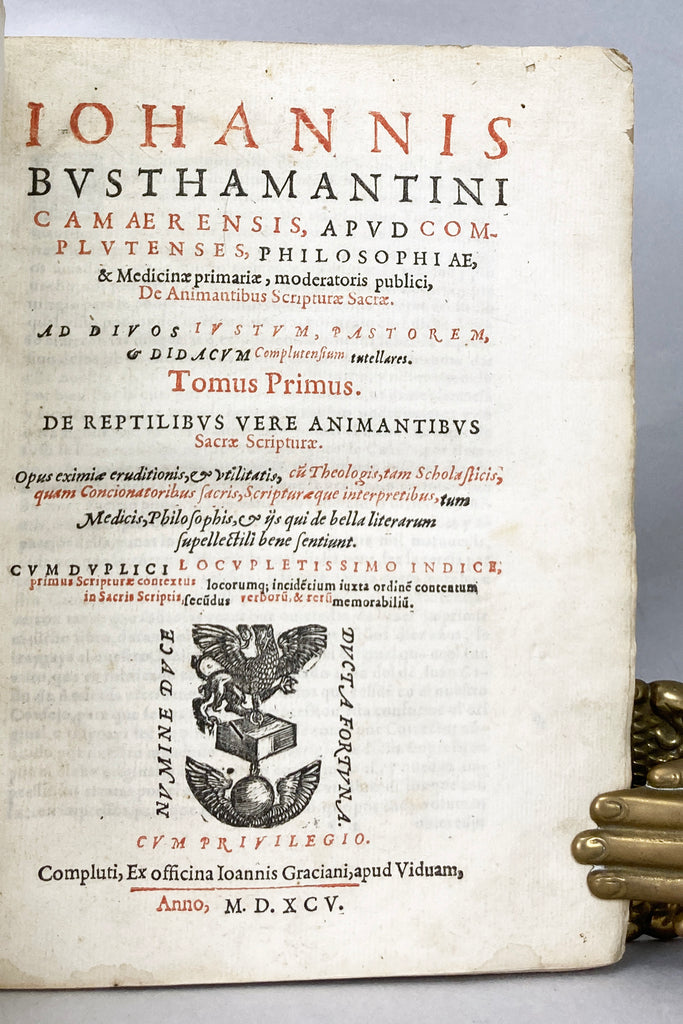 IOHANNIS
BVSTHAMANTINI
CAMAERENSIS, APVD COM-
PLVTENSES, PHILOSOPHIAE,
& Medicinæ primariæ, moderatoris publici,
De Animantibus Scripturæ Sacræ.
AD DIVOS IVSTVM, PASTOREM,
& DIDACVM Complutensium tutellares.
Tomus Primus.
DE REPTILIBVS VERE ANIMANTIBVS
Sacræ Scripturæ.
Opus eximiæ eruditionis, & vtilitatis, cũ Theologis, tam Scholasticis,
quam Concionatoribus sacris, Scripturæque interpretibus, tum
Medicis, Philosophis, & ijs qui de bella literarum
supellectili bene sentiunt.
CVM DVPLICI LOCVPLETISSIMO INDICE,
primus Scripturæ contextus locorumq; incidẽtium iuxta ordinẽ contentum
in Sacris Scriptis, secũdus verborũ, & rerũ memorabiliũ.
NVMINE DVCE
DVCTA FORTVNA.
CVM PRIVILEGIO.
Compluti, Ex officina Ioannis Graciani, apud Viduam,
Anno, M. D. XCV.